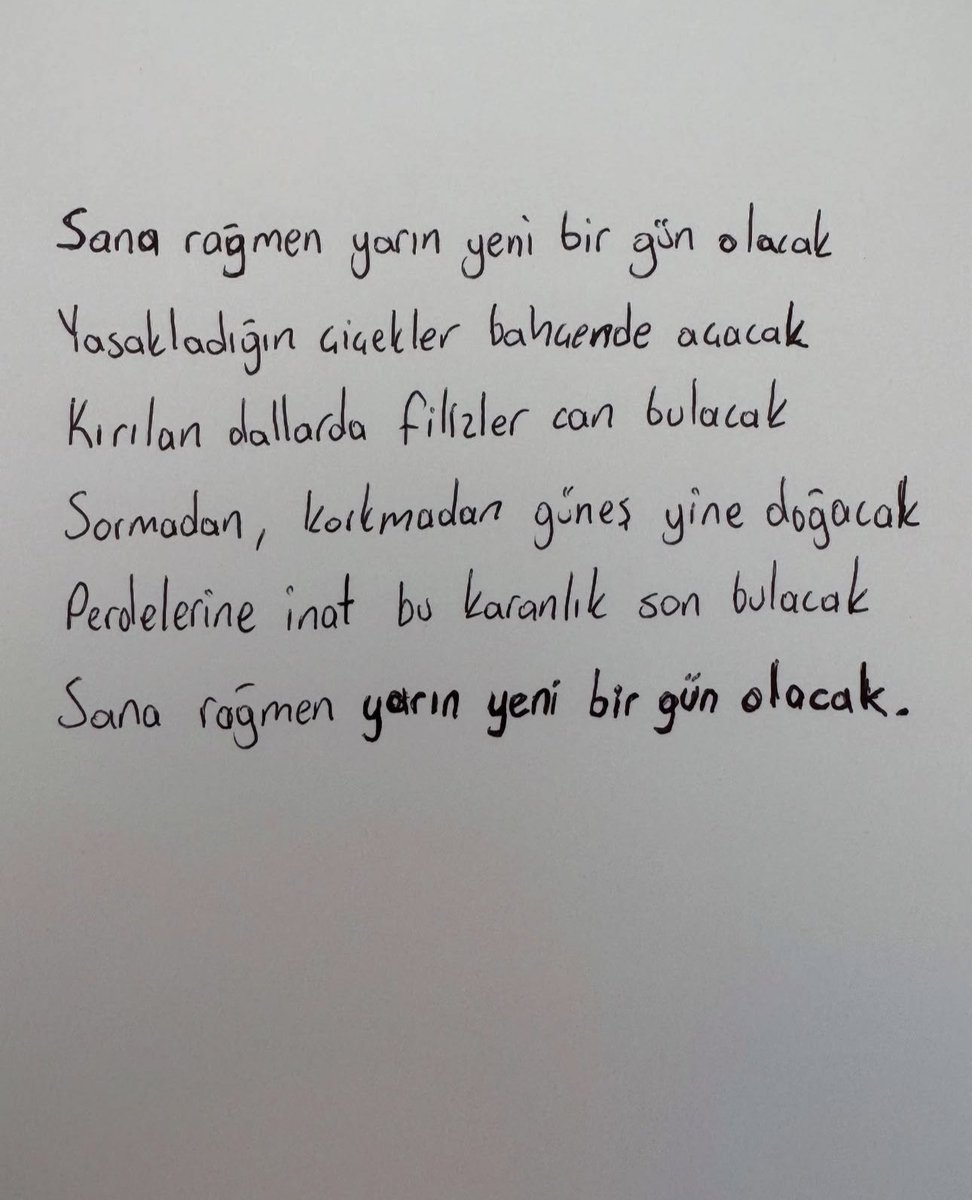 Sana rağmen yarın yeni bir gün olacak
Yasakladığın çiçekler bahçende açacak
Kırılan dallarda filizler can bulacak
Sormadan, korkmadan güneş yine doğacak
Perdelerine inat bu karanlık son bulacak
Sana rağmen yarın yeni bir gün olacak.